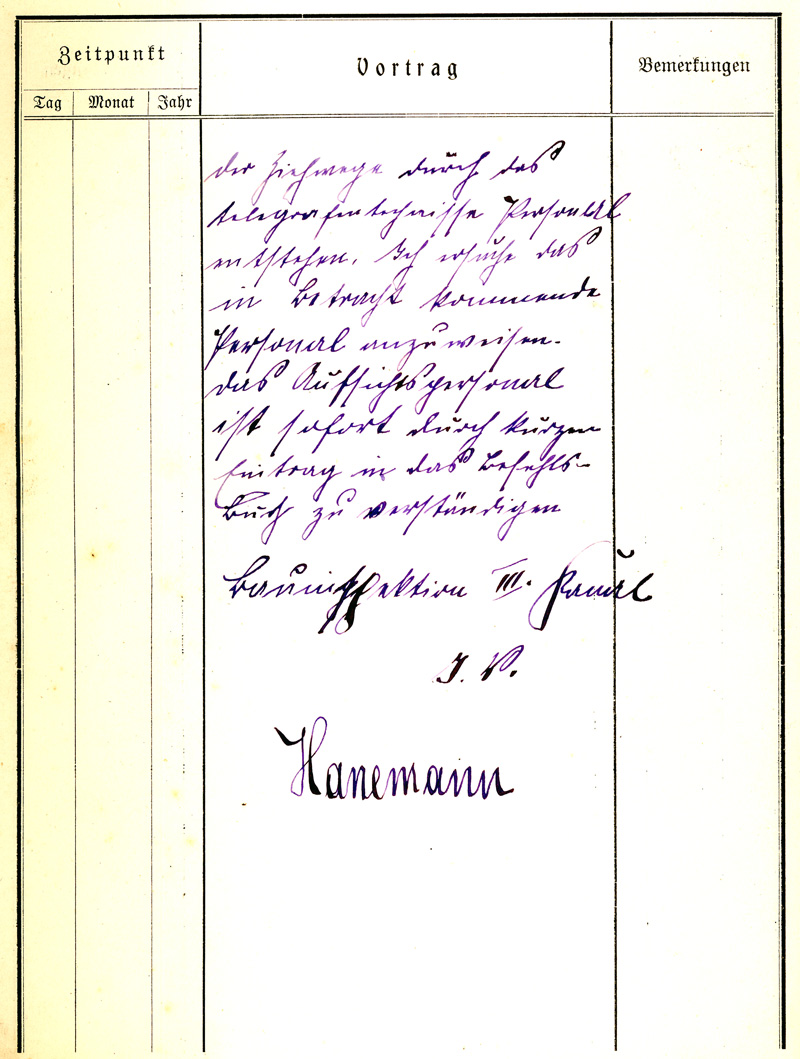 Zeitpunkt
Vortrag
Bemerkungen
Tag Monat Jahr
der Ziehwege durch das
telegrafentechnisse Personal
entstehen. Ich ersuche das
in Betracht kommende
Personal anzuweisen.
das Aufsichtspersonal
ist sofort durch kurzen
Eintrag in das Befehls-
Buch zu verständigen
Bauinspektion III.
I. V.
Hanemann